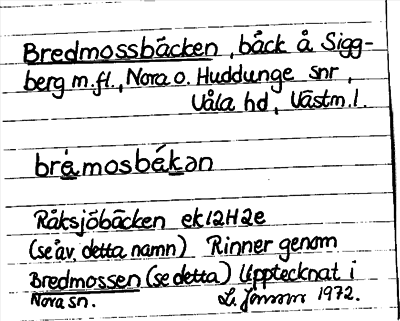 Bredmossbäcken, bäck å Sigg-
berg m.fl., Nora o. Huddunge snr,
Våla hd, Västm.l.
brémosbékan
Råksjöbäcken ek12H2e
(se äv. detta namn) Rinner genom
Bredmossen (se detta) Upptecknat i
Nora sn. L. Jonsson 1972.